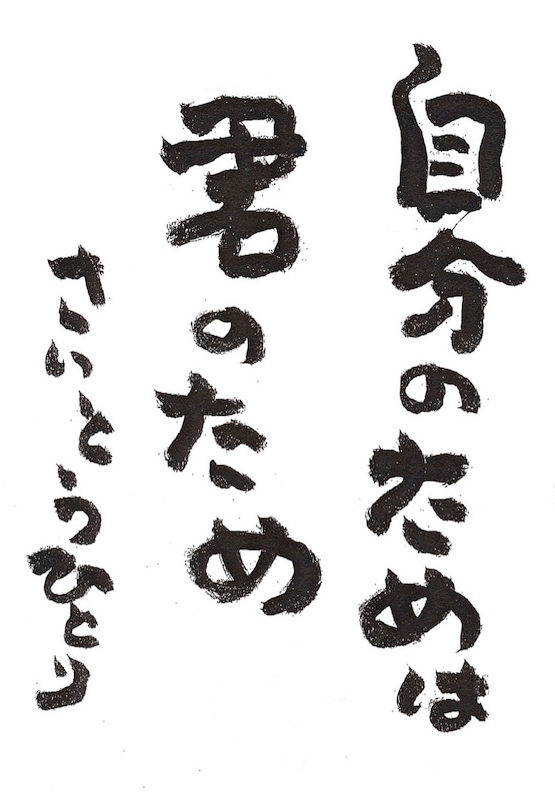 自分のためは
君のため
さいとうひとり